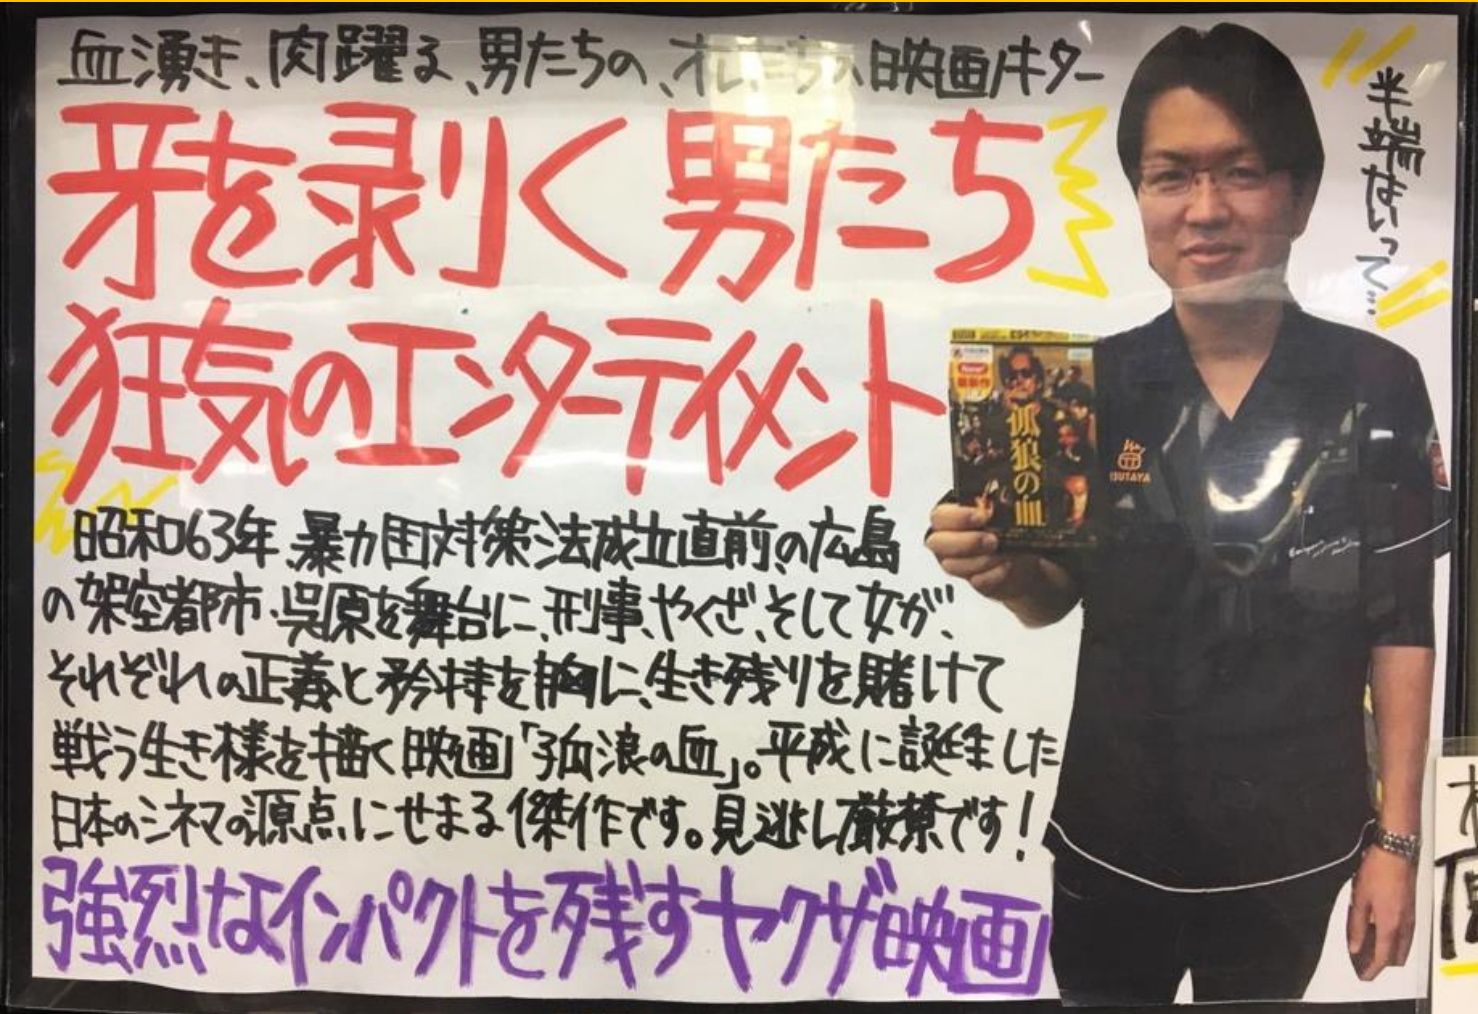 血湧き、肉躍る、男たちの、オレたちの映画キター
牙を剥く男たち
狂気のエンターテイメント
半端ないって…
New!
孤狼の血
TSUTAYA
昭和63年、暴力団対策法成立直前の広島
の架空都市・呉原を舞台に、刑事、やくざ、そして女が、
それぞれの正義と矜持を胸に、生き残りを賭けて
戦う生き様を描く映画「孤浪の血」。平成に誕生した
日本のシネマの源点にせまる傑作です。見逃し厳禁です!
強烈なインパクトを残すヤクザ映画